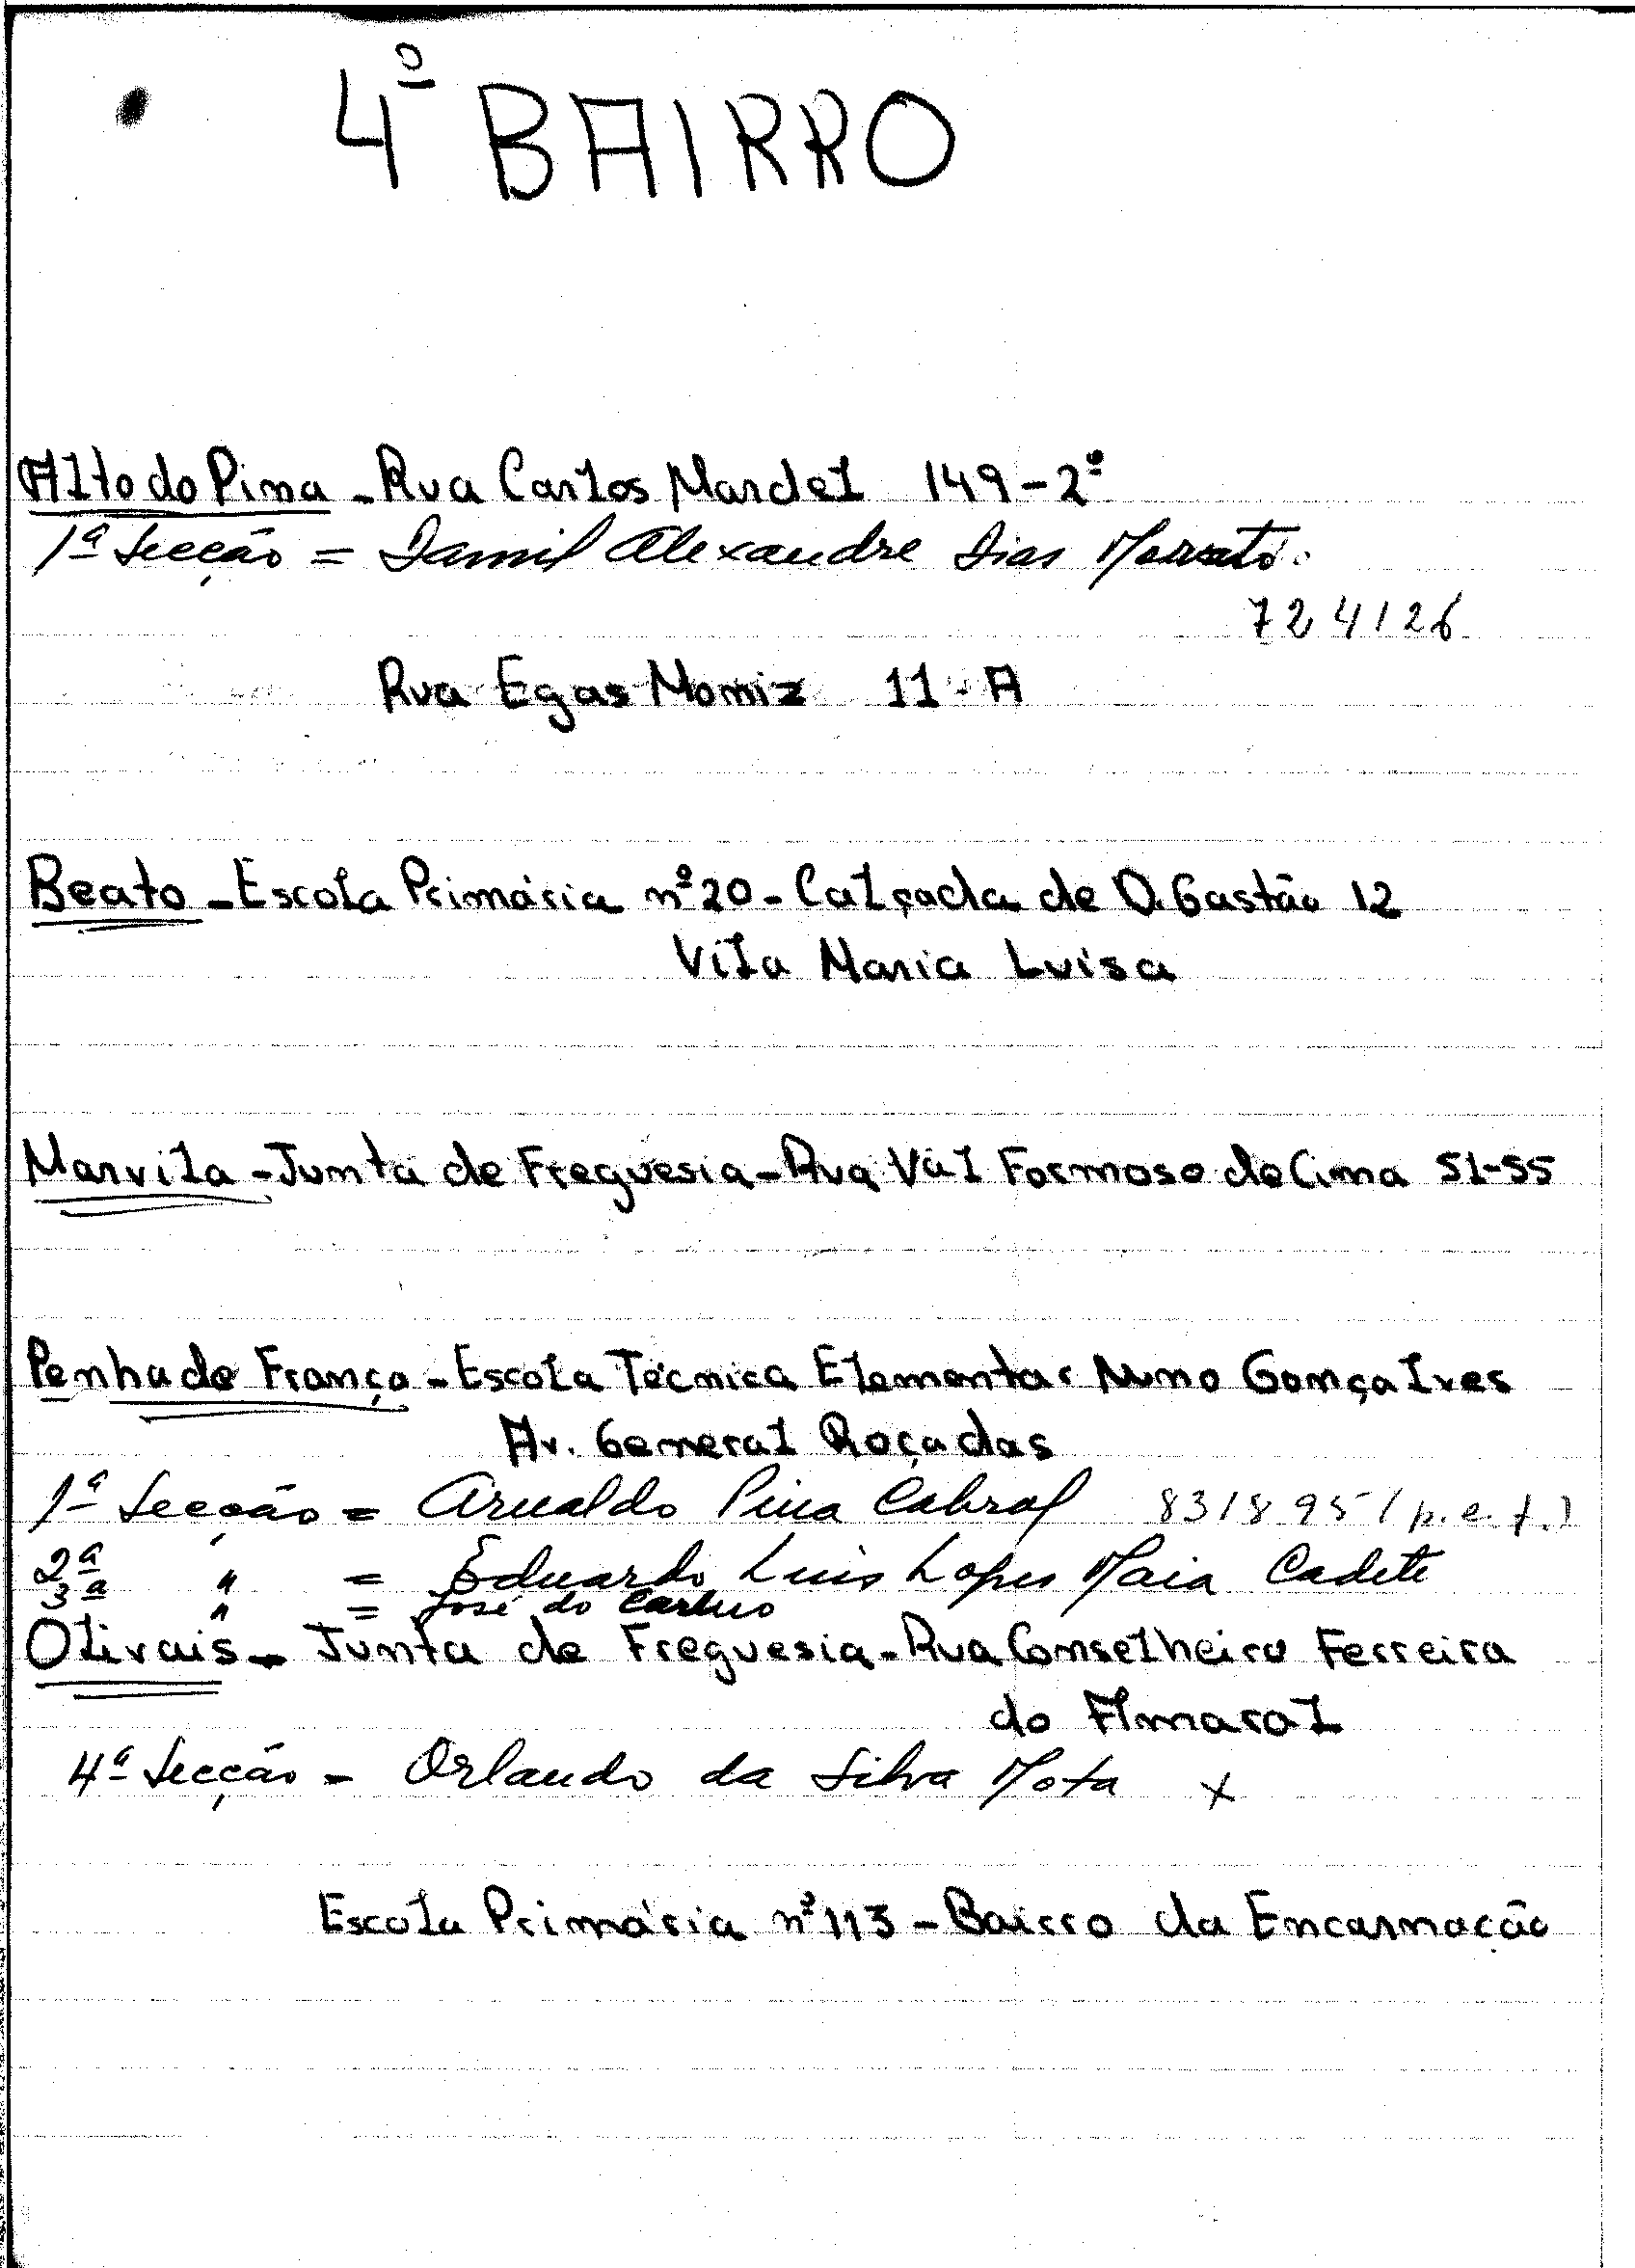 4º BAIRRO
Alto do Pina - Rua Carlos Mardel 149-2º
1ª Secção = Alexandre Dias
724126
Rua Egas Moniz 11-A
Beato - Escola Primária nº 20 - Calçada de D. Gastão 12
Vila Maria Luisa
Marvila - Junta de Freguesia - Rua Val Formoso de Cima 51-55
Penha de França - Escola Técnica Elementar Nuno Gonçalves
Av. General Roçadas
1ª Secção = Arnaldo Pina Cabral 831895 (p.e.f.)
2ª " = Eduardo Luis Lopes Maia Cadete
3ª " = José do Carmo
Olivais - Junta de Freguesia - Rua Conselheiro Ferreira
do Amaral
4ª Secção - Orlando da Silva Mota x
Escola Primária nº 113 - Bairro da Encarnação